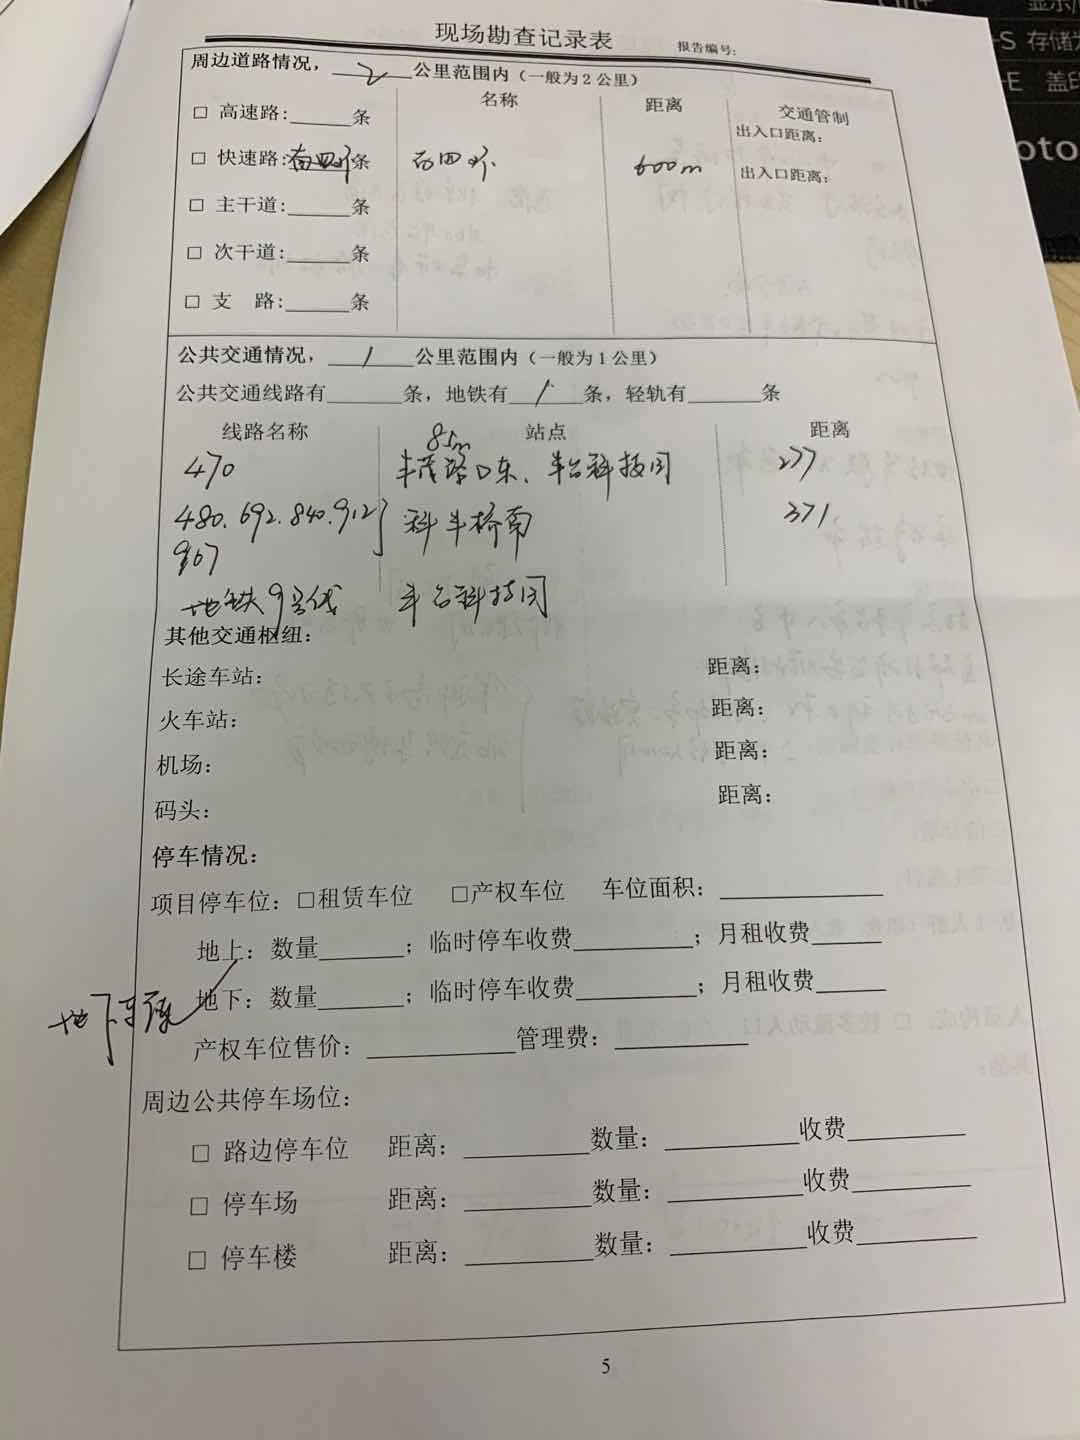 现场勘查记录表 报告编号:
周边道路情况，2公里范围内（一般为2公里）
名称 距离 交通管制
□ 高速路:______条 出入口距离:
□ 快速路:南四环条 南四环 600m 出入口距离:
□ 主干道:______条
□ 次干道:______条
□ 支 路:______条
公共交通情况，1公里范围内（一般为1公里）
公共交通线路有______条，地铁有1条，轻轨有______条
线路名称 站点 距离
85m
470 丰茂路口东、丰台科技园 277
480.692.840.912 科丰桥南 371
967
地铁9号线 丰台科技园
其他交通枢纽:
长途车站: 距离:
火车站: 距离:
机场: 距离:
码头: 距离:
停车情况:
项目停车位: □租赁车位 □产权车位 车位面积:____________
地上: 数量______; 临时停车收费________; 月租收费_____
地下车库 地下: 数量______; 临时停车收费________; 月租收费_____
产权车位售价: __________管理费: _________
周边公共停车场位:
□ 路边停车位 距离: _________数量: _________收费________
□ 停车场 距离: _________数量: _________收费________
□ 停车楼 距离: _________数量: _________收费________
5
Ctrl+
显示/
-S 存储为
-E 盖印
oto